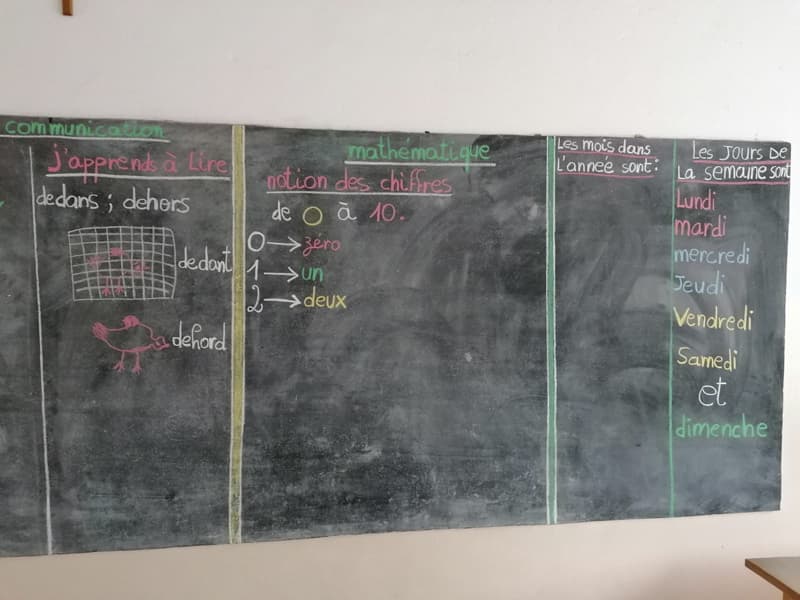 communication
j'apprends à Lire
dedans ; dehors
dedant
dehord
mathématique
notion des chiffres
de 0 à 10.
0 → zéro
1 → un
2 → deux
Les mois dans
L'année sont :
Les Jours De
La semaine sont
Lundi
mardi
mercredi
Jeudi
Vendredi
Samedi
et
dimenche